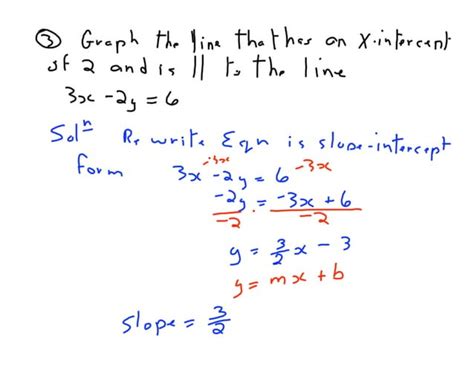 ③ Graph the line that has an X-intercept
of 2 and is || to the line
3x - 2y = 6
Solⁿ Rewrite Eqn is slope-intercept
form
-3x
3x - 2y = 6 -3x
-2y = -3x + 6
-2 -2
y = 3/2 x - 3
y = mx + b
slope = 3/2